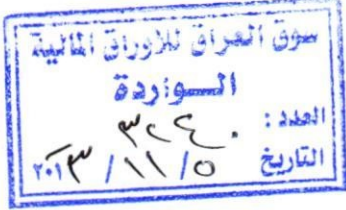 سوق العراق للاوراق المالية
الـــواردة
العدد : ٣٢٤٠
التاريخ ٢٠١٣ / ١١ / ٥